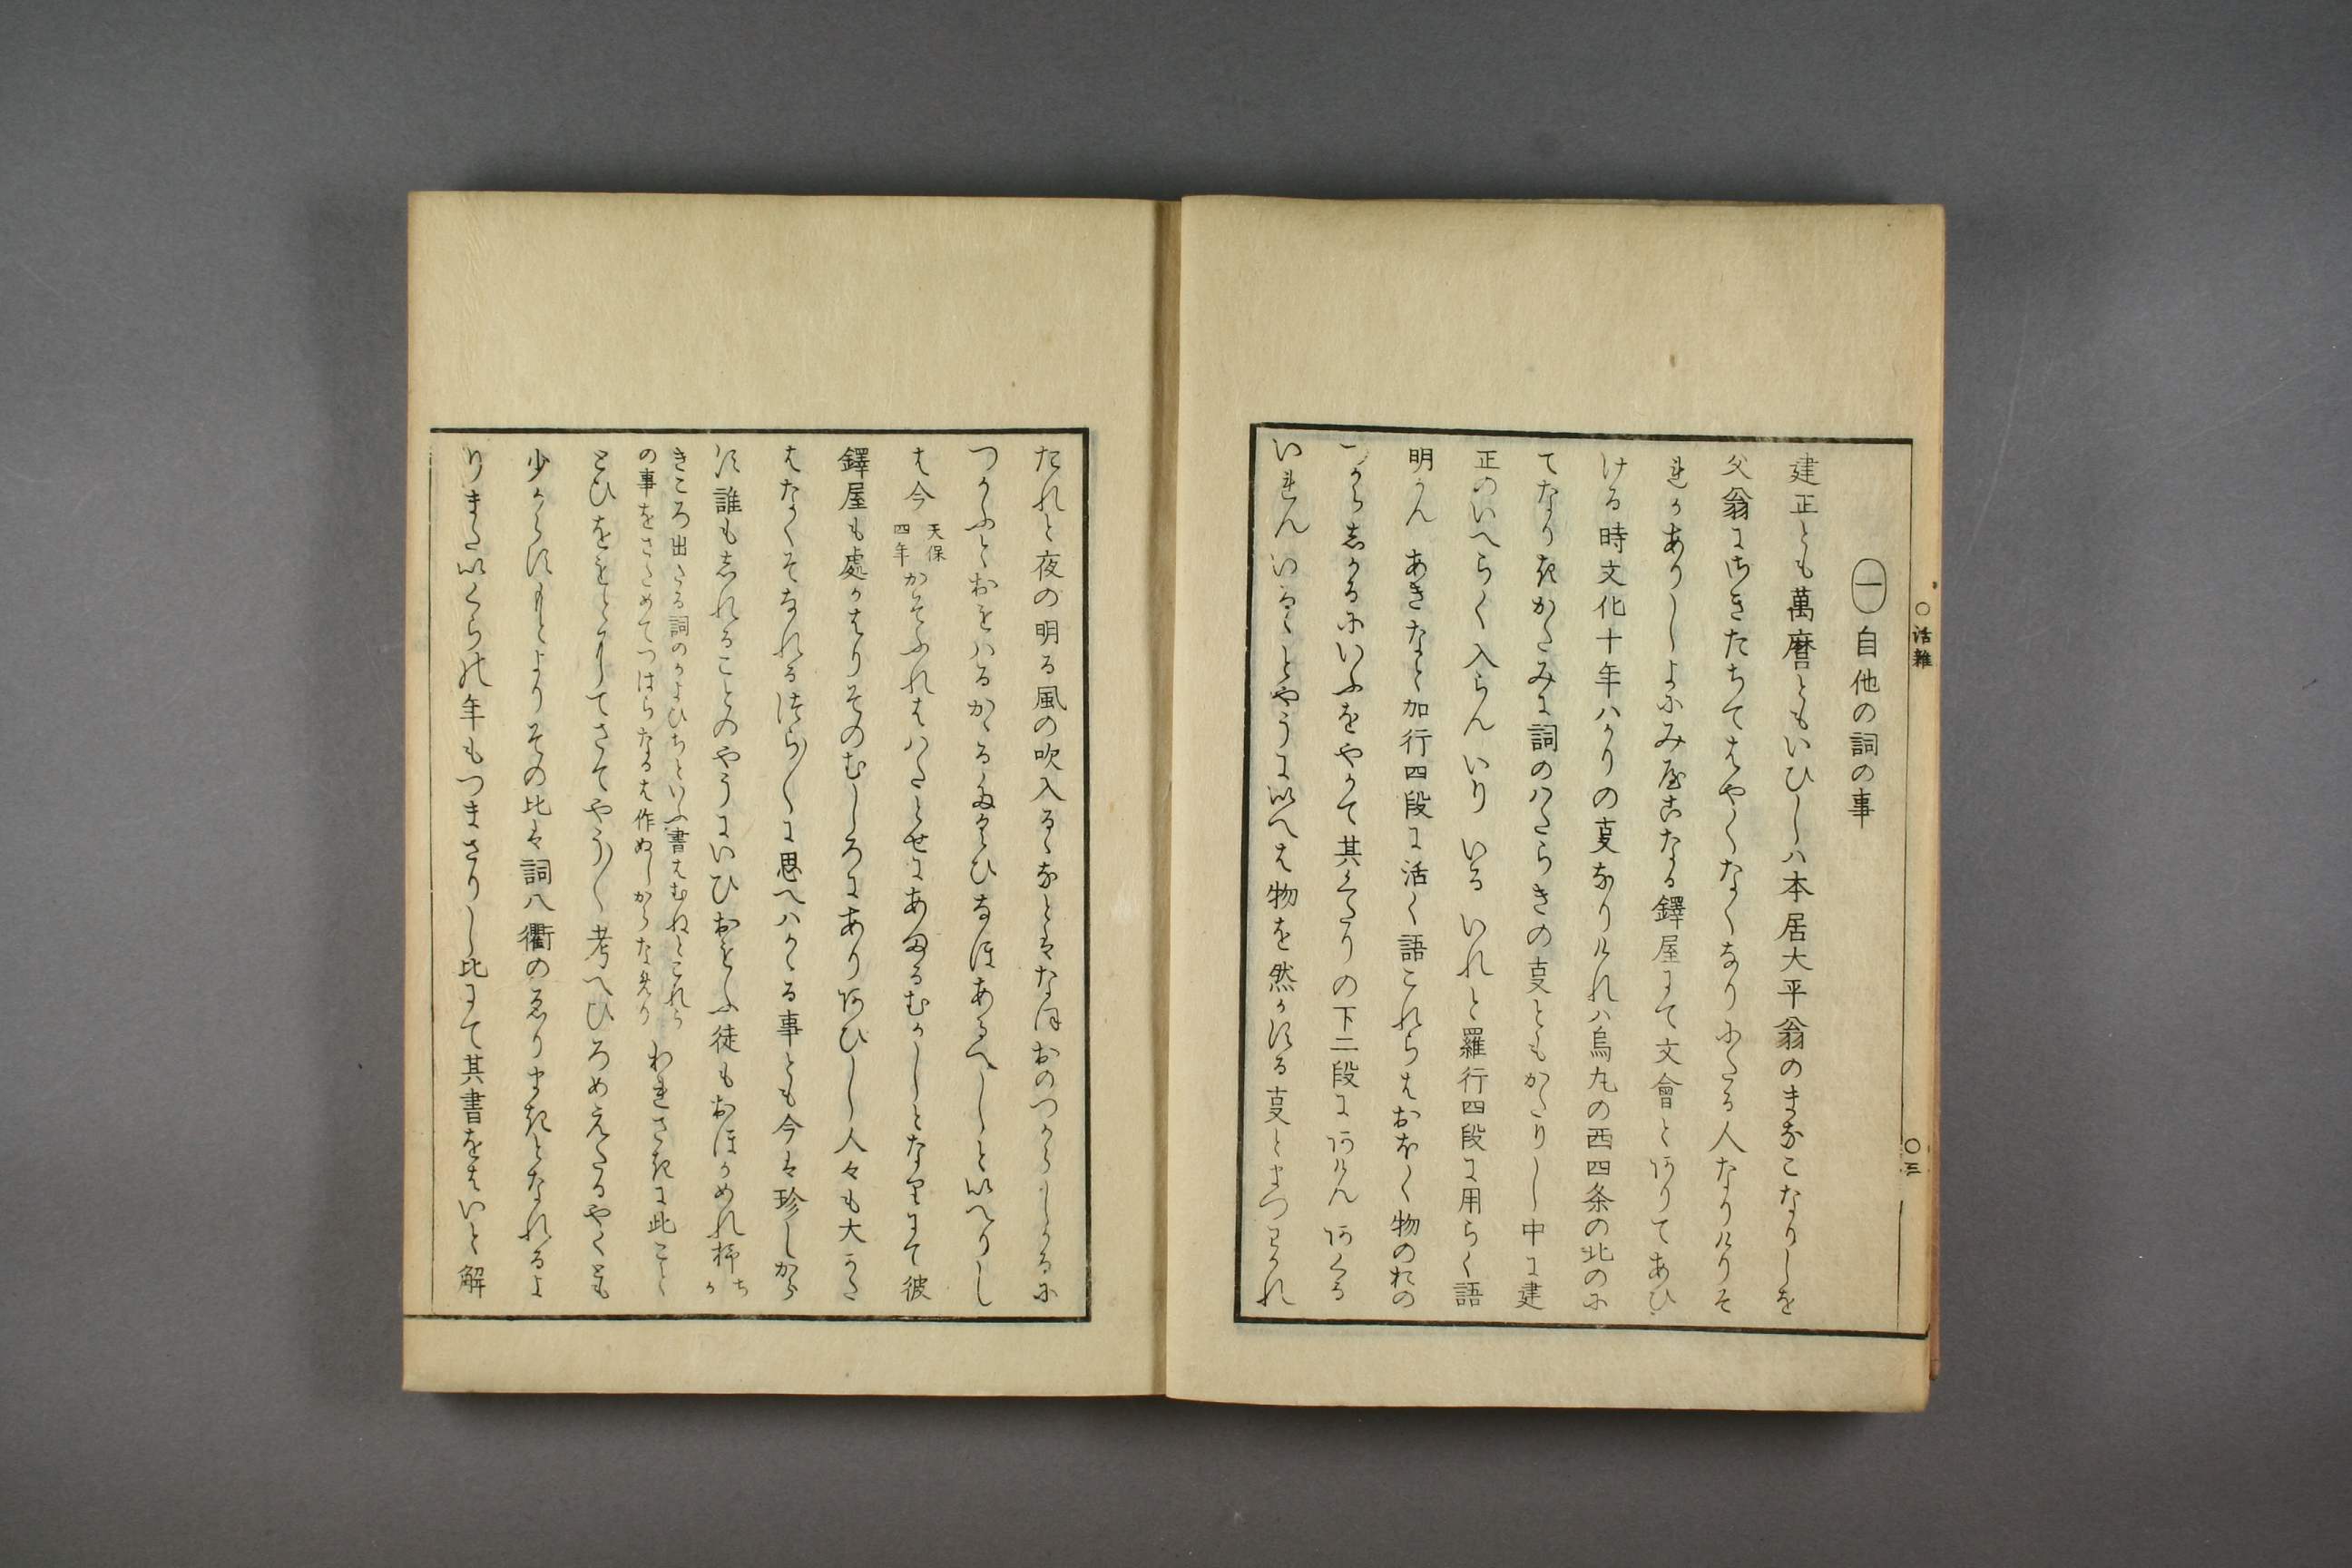 ○活雜
○三
一 自他の詞の事
建正とも萬麿ともいひしハ本居大平翁のまなこなりしを
父翁にさきたちてはやくなくなりにたる人なりけりそ
れかありしよにみ屋こなる鐸屋にて文會とありてあひ
ける時文化十年ハかりの事なりけれハ烏丸の西四条の北のに
てなりきかたみに詞のハたらきの事ともかたりし中に建
正のいへらく入らん いり いる いれと羅行四段に用らく語
明かん あき なと加行四段に活く語これらはおほく物のおの
つからしかるにいふをやかて其くたりの下二段にあけん あくる
いれん いるゝとやうにいへは物を然かする事とまつわかれ
たれと夜の明る風の吹入るゝなとはなほおのつからしかるに
つかふとおをハるかゝるたくひなほあるへしといへりし
は今天保四年かそふれはハたとせにあまるむかしとなりにて彼
鐸屋も處かはりそのむしろにありあひし人々も大かた
はなくそなれるつら〳〵に思へハかゝる事とも今は珍しから
す誰もしれることのやうにいひおをしふ徒もおほかめれ抔ちか
きころ出たる詞のかよひちといふ書はむねとこれら
の事をさためてつはらなるは作ぬしからなめり
われさきに此こと
とひをきとりてさてやう〳〵考へひろめえたるやくも
少からすもとよりその比は詞八衢のゑりまきとなれるよ
りまたいくらの年もつまさりし比にて其書をはいと解